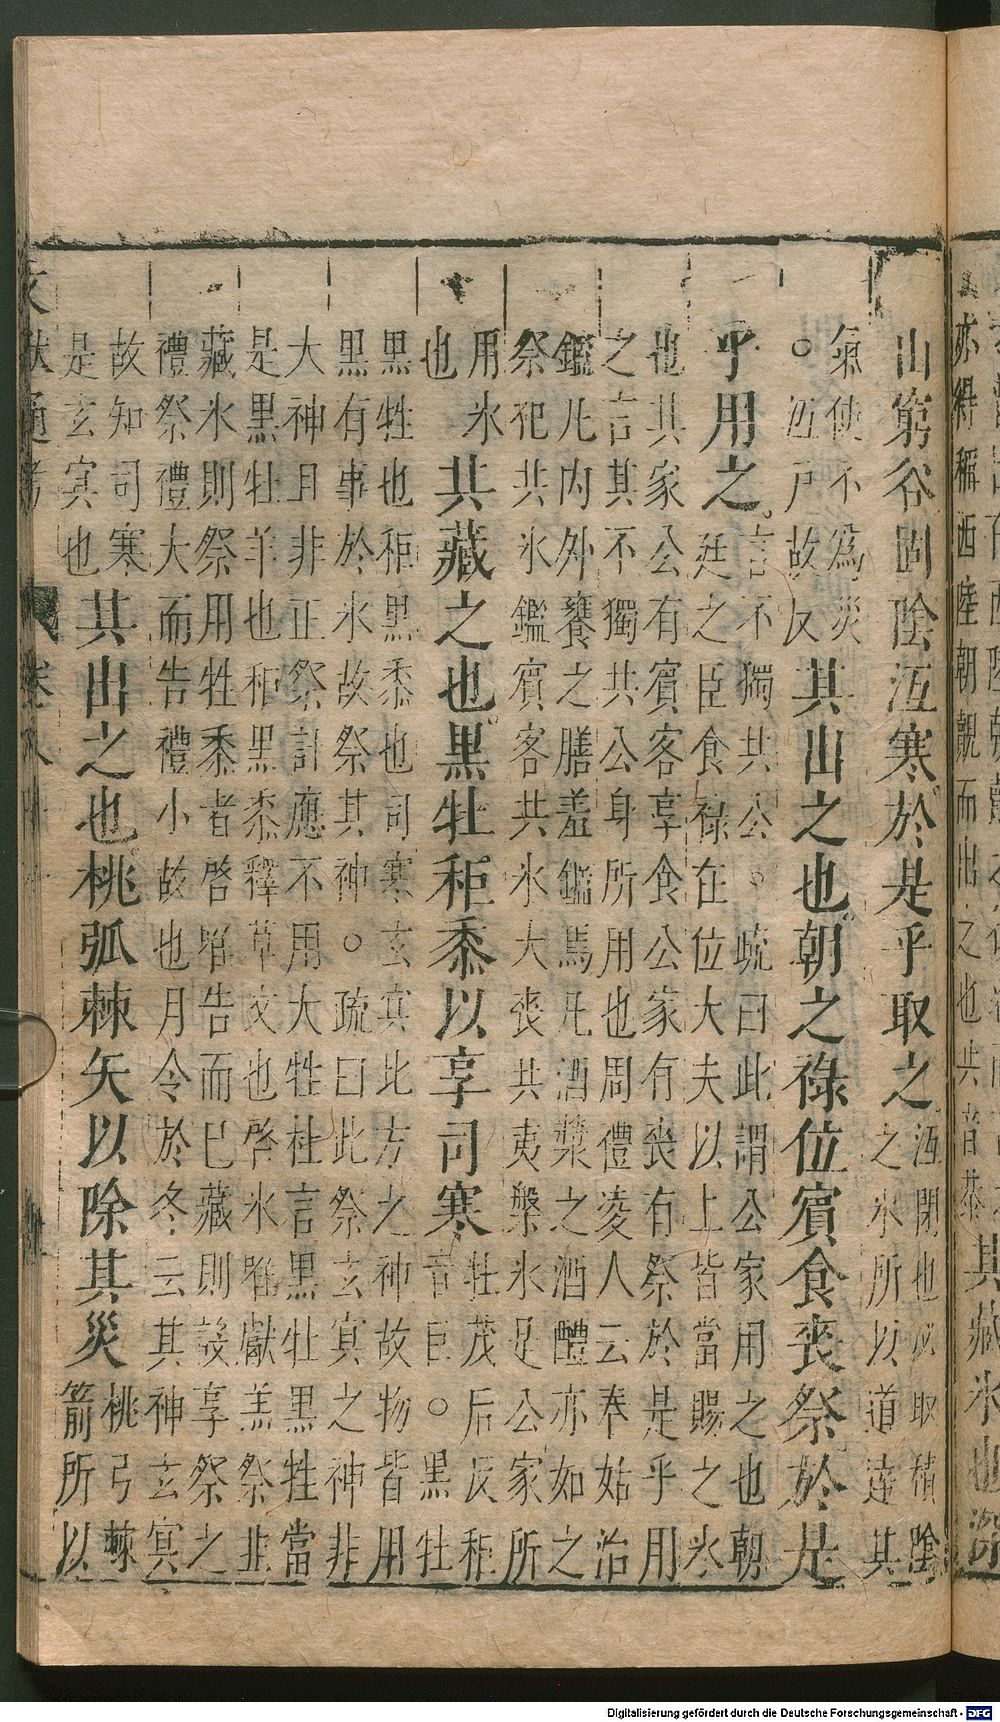 亦得稱西陸朝覿而出之也共音恭
其藏氷也深
山窮谷固陰沍寒於是乎取之
沍閉也必取積陰
之氷所以道達其
氣使不為災
。沍戸故反
其出之也朝之祿位賓食喪祭於是
乎用之
言不獨共公。疏曰此謂公家用之也朝
廷之臣食祿在位大夫以上皆當賜之氷
也其家公有賓客享食公家有喪有祭於是乎用
之言其不獨共公身所用也周禮凌人云奉姑治
鑑凡内外饔之膳羞鑑焉凡酒漿之酒醴亦如之
祭犯共氷鑑賓客共氷大喪共夷槃氷足公家所
用氷
也
共藏之也黑牡秬黍以享司寒
牡茂后反秬
音巨。黑牡
黑牲也秬黑黍也司寒玄冥比方之神故物皆用
黒有事於氷故祭其神。疏曰此祭玄冥之神非
大神且非正祭計應不用大牲杜言黑牡黑牲當
是黑牡羊也秬黑黍釋草文也啓氷唯獻羔祭韭
藏氷則祭用牲黍者啓唯告而已藏則設享祭之
禮祭禮大而告禮小故也月令於冬云其神玄冥
故知司寒
是玄冥也
其出之也桃弧棘矢以除其災
桃弓棘
箭所以
文獻通考
Digitalisierung gefördert durch die Deutsche Forschungsgemeinschaft - DFG